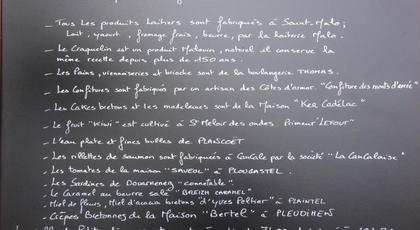 _ Tous les produits laitiers sont fabriqués à Saint-Malo ;
Lait, yaourt, fromage frais, beurre, par la laiterie Malo.
_ Le Craquelin est un produit Malouin, naturel il conserve la
même recette depuis plus de 150 ans.
_ Les Pains, viennoiseries et brioche sont de la boulangerie THOMAS.
_ Les Confitures sont fabriquées par un artisan des Côtes d'armor. "Confiture des monts d'arrée"
_ Les Cakes bretons et les madeleines sont de la Maison "Ker Cadélac"
_ Le fruit "Kiwi" est cultivé à St Meloir des ondes. Primeur "LEFOUR"
_ L'eau plate et fines bulles de PLANCOËT
_ Les rillettes de saumon sont fabriquées à Cancale par la société "La Cancalaise"
_ Les tomates de la maison "SAVEOL" à PLOUGASTEL.
_ Les Sardines de Douarnenez - connétable".
_ Le Caramel au beurre salé "BREIZH CARAMEL"
_ Miel de fleurs, Miel d'acacia bretons d'"Yves Peltier" à PLAINTEL
_ Crêpes Bretonnes de la Maison "Bertel" à PLEUDIHEN